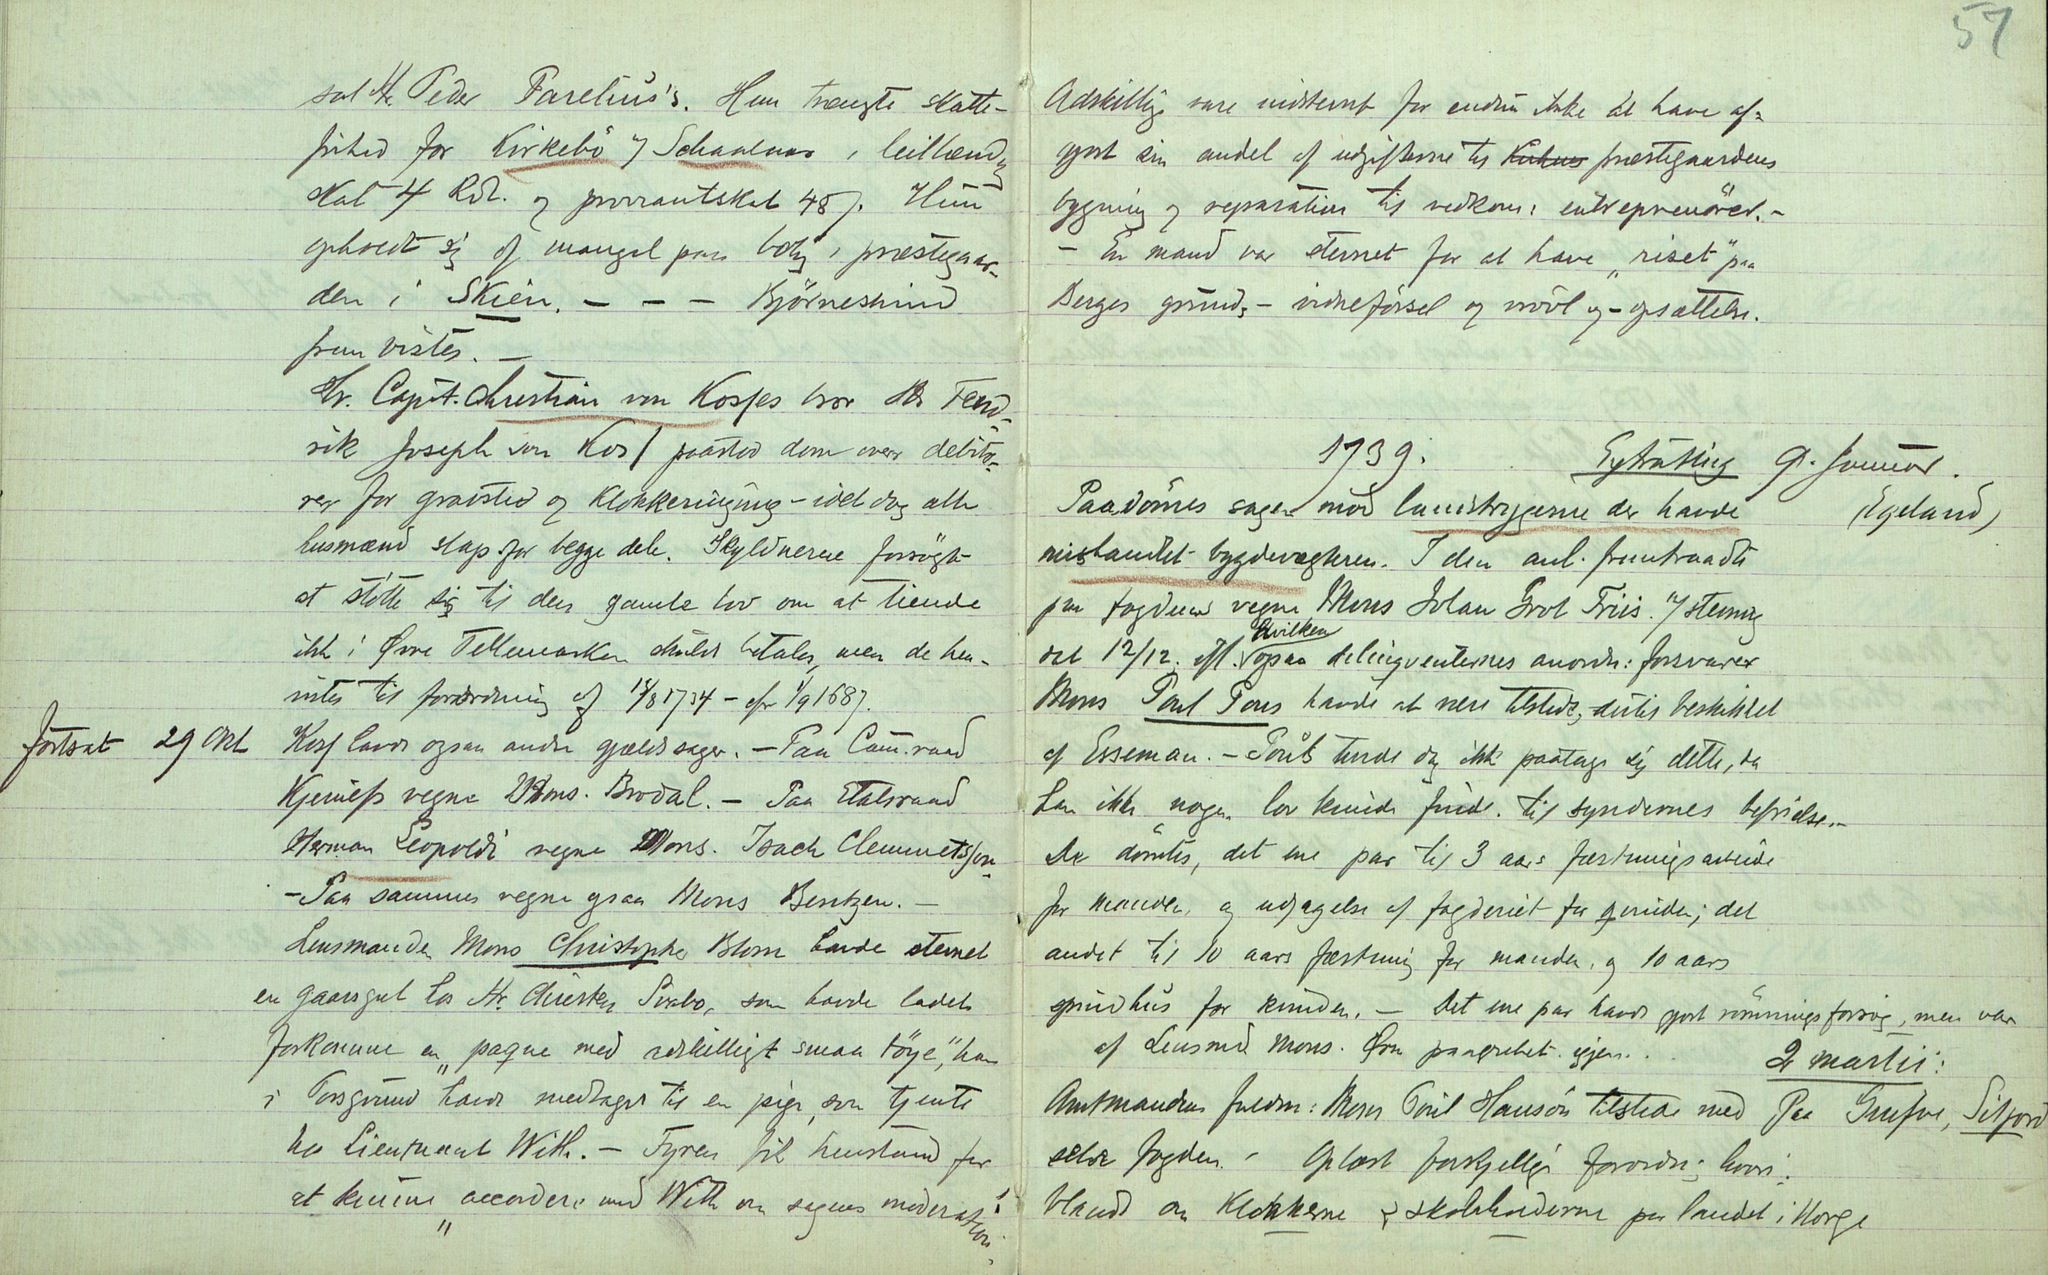 sal Hr Peder Parelius's. Hun trængte skatte-
frihed for Kirkebö & Schaalaas i leilænding
skat 4 Rdl. og proviantskat 48 f. Hun
opholdt sig af mangel paa bolig i præstegaar-
den i Skien. — — — Björneskind
fremvistes. —
Hr. Capit. Christian von Kosses bror Hr Fend-
rik Joseph von Koss paastod dom over debito-
rer for gravsted og klokkeringning — idet dog alle
husmænd slap for begge dele. Skyldnerne forsögte
at stötte sig til den gamle lov om at tiende
ikke i Övre Tellemarken skulde betales, men de hen-
vistes til forordning af 13/8 1734 - efr 1/9 1687.
Fortsat 29 Okt Koss havde ogsaa andre gjældssager. — Paa Cam.raad
vegne Mons. Brodal. — Paa Etatsraad
Herman Leopoldi vegne Mons. Isach Clemmetsson
— Paa sammes vegne ogsaa Mons Bentzen. —
Lensmanden Mons Christopher Blom havde stevnet
en gaardsgut hos Hr. Christen Svabo, som havde ladet
forkomme en "paque med adskilligt smaa töye", han
i Porsgrund havde medtaget til en pige, som tjente
hos Lieutnant With. — Fyren fik henstand for
at kunne "accordere med With om sagens moderation".
57
Adskillige vare indstevnt for endnu ikke at have af-
gjort sin andel af udgifterne til præstegaardens
bygning og reparation til vedkom: entreprenörer. —
— En mand var stevnet for at have "riset" paa
Berges grund, — vidneförsel og vrövl og — opsættelse.
1739. 9. Januar.
Paadömes sagen mod landstrygerne der havde (Egeland)
mishandlet bygdevægteren. I den anl. fremtraadte
paa fogdens vegne Mons Johan Grot Friis. 
det 12/12. eft. hvilken ogsaa delinqventernes anordn: forsvarer
Mons Poul Pous havde at være tilstede, dertil beskikket
af Esseman. — Pous turde dog ikke paatage sig dette, da
han ikke nogen lov kunde finde til syndernes befrielse. —
De dömtes, det ene par til 3 aars fæstningsarbeide
for manden, og udjagelse af fogderiet for qvinden; det
andet til 10 aars fæstning for manden, og 10 aars
spindhus for kvinden. — Det ene par havde gjort römningsforsög, men var
af Lensmd Mons. Örn paagrebet igjen.
2 martii:
Amtmandens fuldm: Mons Poul Hansön tilstede med Paa Grufve, Siljord
selve fogden. — Oplæst forskjellige forordn: hvori:
blandt om Klokkerne & skoleholderne paa landet i Norge